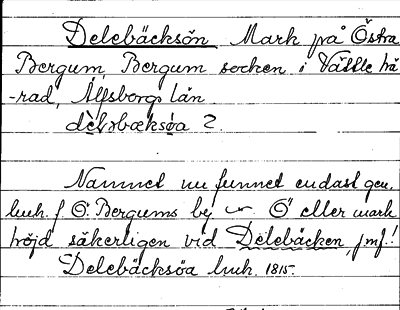 Delebäcksön Mark på Östra
Bergum, Bergum socken i Vättle hä
-rad, Älfsborgs län
dèləbæksǿa 2.
Namnet nu funnet endast gen.
huh. f. Ö. Bergums by ~ Ö eller mark
höjd säkerligen vid Delebäcken, jmf!
Delebäcksöa huh. 1815.